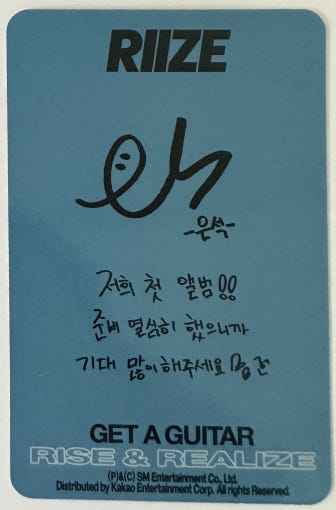 RIIZE
-은석-
저희 첫 앨범!!
준비 열심히 했으니까
기대 많이해주세요
GET A GUITAR
RISE & REALIZE
(P)&(C) SM Entertainment Co., Ltd.
Distributed by Kakao Entertainment Corp. All rights Reserved.